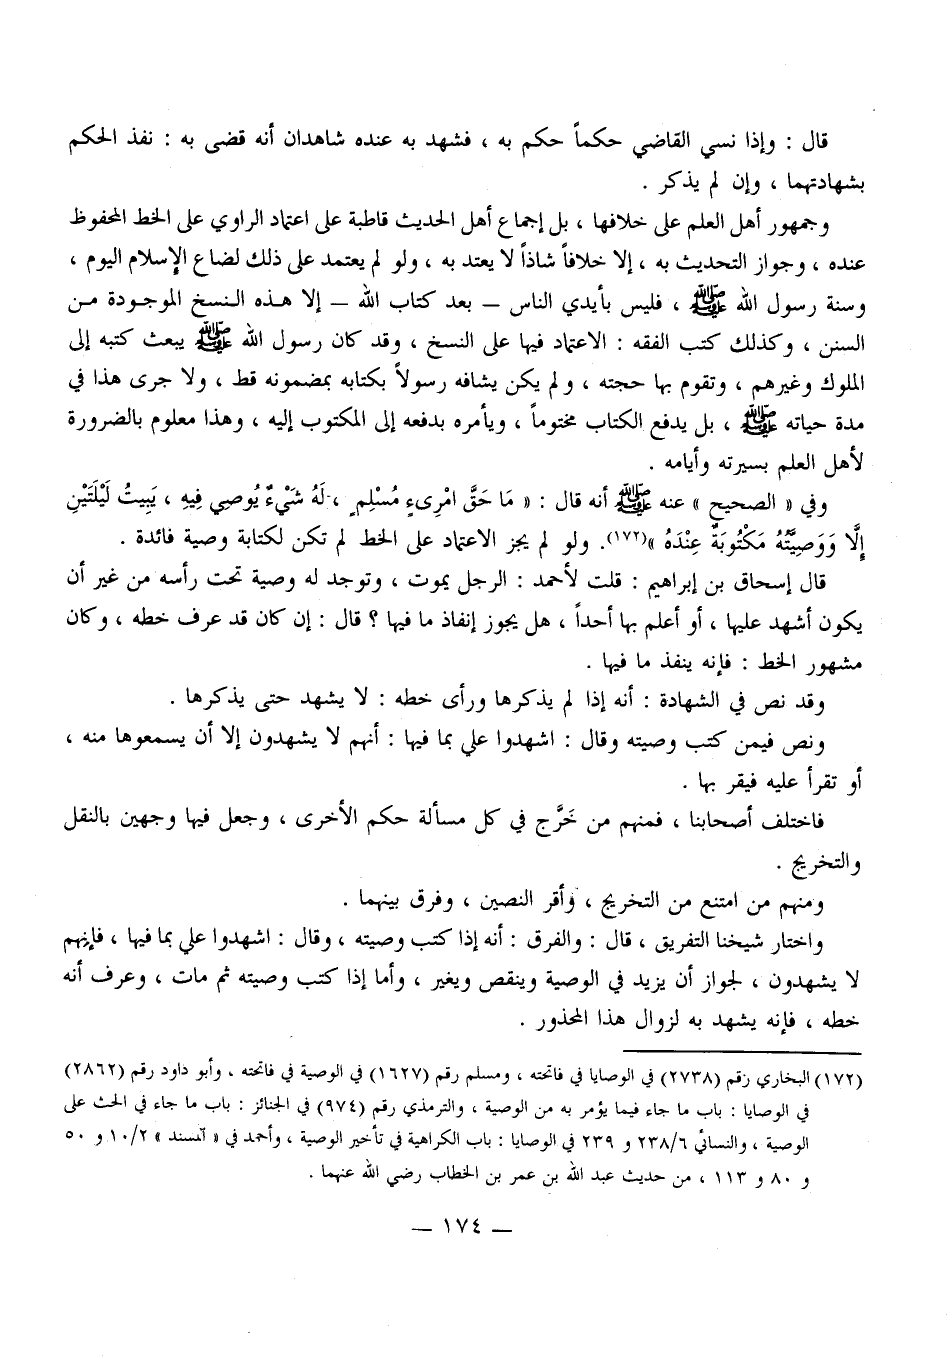 قال : وإذا نسي القاضي حكماً حكم به ، فشهد به عنده شاهدان أنه قضى به : نفذ الحكم
بشهادتهما ، وإن لم يذكر .
وجمهور أهل العلم على خلافها ، بل إجماع أهل الحديث قاطبة على اعتماد الراوي على الخط المحفوظ
عنده ، وجواز التحديث به ، إلا خلافاً شاذاً لا يعتد به ، ولو لم يعتمد على ذلك لضاع الإسلام اليوم ،
وسنة رسول الله ﷺ ، فليس بأيدي الناس – بعد كتاب الله – إلا هذه النسخ الموجودة من
السنن ، وكذلك كتب الفقه : الاعتماد فيها على النسخ ، وقد كان رسول الله ﷺ يبعث كتبه إلى
الملوك وغيرهم ، وتقوم بها حجته ، ولم يكن يشافه رسولاً بكتابه بمضمونه قط ، ولا جرى هذا في
مدة حياته ﷺ ، بل يدفع الكتاب مختوماً ، ويأمره بدفعه إلى المكتوب إليه ، وهذا معلوم بالضرورة
لأهل العلم بسيرته وأيامه .
وفي « الصحيح » عنه ﷺ أنه قال : « مَا حَقَّ امْرِىءٍ مُسْلِمٍ ، لَهُ شَيْءٌ يُوصِي فِيهِ ، يَبِيتُ لَيْلَتَيْنِ
إِلَّا وَوَصِيَّتُهُ مَكْتُوبَةٌ عِنْدَهُ »(١٧٢). ولو لم يجز الاعتماد على الخط لم تكن لكتابة وصية فائدة .
قال إسحاق بن إبراهيم : قلت لأحمد : الرجل يموت ، وتوجد له وصية تحت رأسه من غير أن
يكون أشهد عليها ، أو أعلم بها أحداً ، هل يجوز إنفاذ ما فيها ؟ قال : إن كان قد عرف خطه ، وكان
مشهور الخط : فإنه ينفذ ما فيها .
وقد نص في الشهادة : أنه إذا لم يذكرها ورأى خطه : لا يشهد حتى يذكرها .
ونص فيمن كتب وصيته وقال : اشهدوا علي بما فيها : أنهم لا يشهدون إلا أن يسمعوها منه ،
أو تقرأ عليه فيقر بها .
فاختلف أصحابنا ، فمنهم من خَرَّج في كل مسألة حكم الأخرى ، وجعل فيها وجهين بالنقل
والتخريج .
ومنهم من امتنع من التخريج ، وأقر النصين ، وفرق بينهما .
واختار شيخنا التفريق ، قال : والفرق : أنه إذا كتب وصيته ، وقال : اشهدوا علي بما فيها ، فإنهم
لا يشهدون ، لجواز أن يزيد في الوصية وينقص ويغير ، وأما إذا كتب وصيته ثم مات ، وعرف أنه
خطه ، فإنه يشهد به لزوال هذا المحذور .
(١٧٢) البخاري رقم (٢٧٣٨) في الوصايا في فاتحته ، ومسلم رقم (١٦٢٧) في الوصية في فاتحته ، وأبو داود رقم (٢٨٦٢)
في الوصايا : باب ما جاء فيما يؤمر به من الوصية ، والترمذي رقم (٩٧٤) في الجنائز : باب ما جاء في الحث على
الوصية ، والنسائي ٢٣٨/٦ و ٢٣٩ في الوصايا : باب الكراهية في تأخير الوصية ، وأحمد في « المسند » ١٠/٢ و ٥٠
و ٨٠ و ١١٣ ، من حديث عبد الله بن عمر بن الخطاب رضي الله عنهما .
— ١٧٤ —